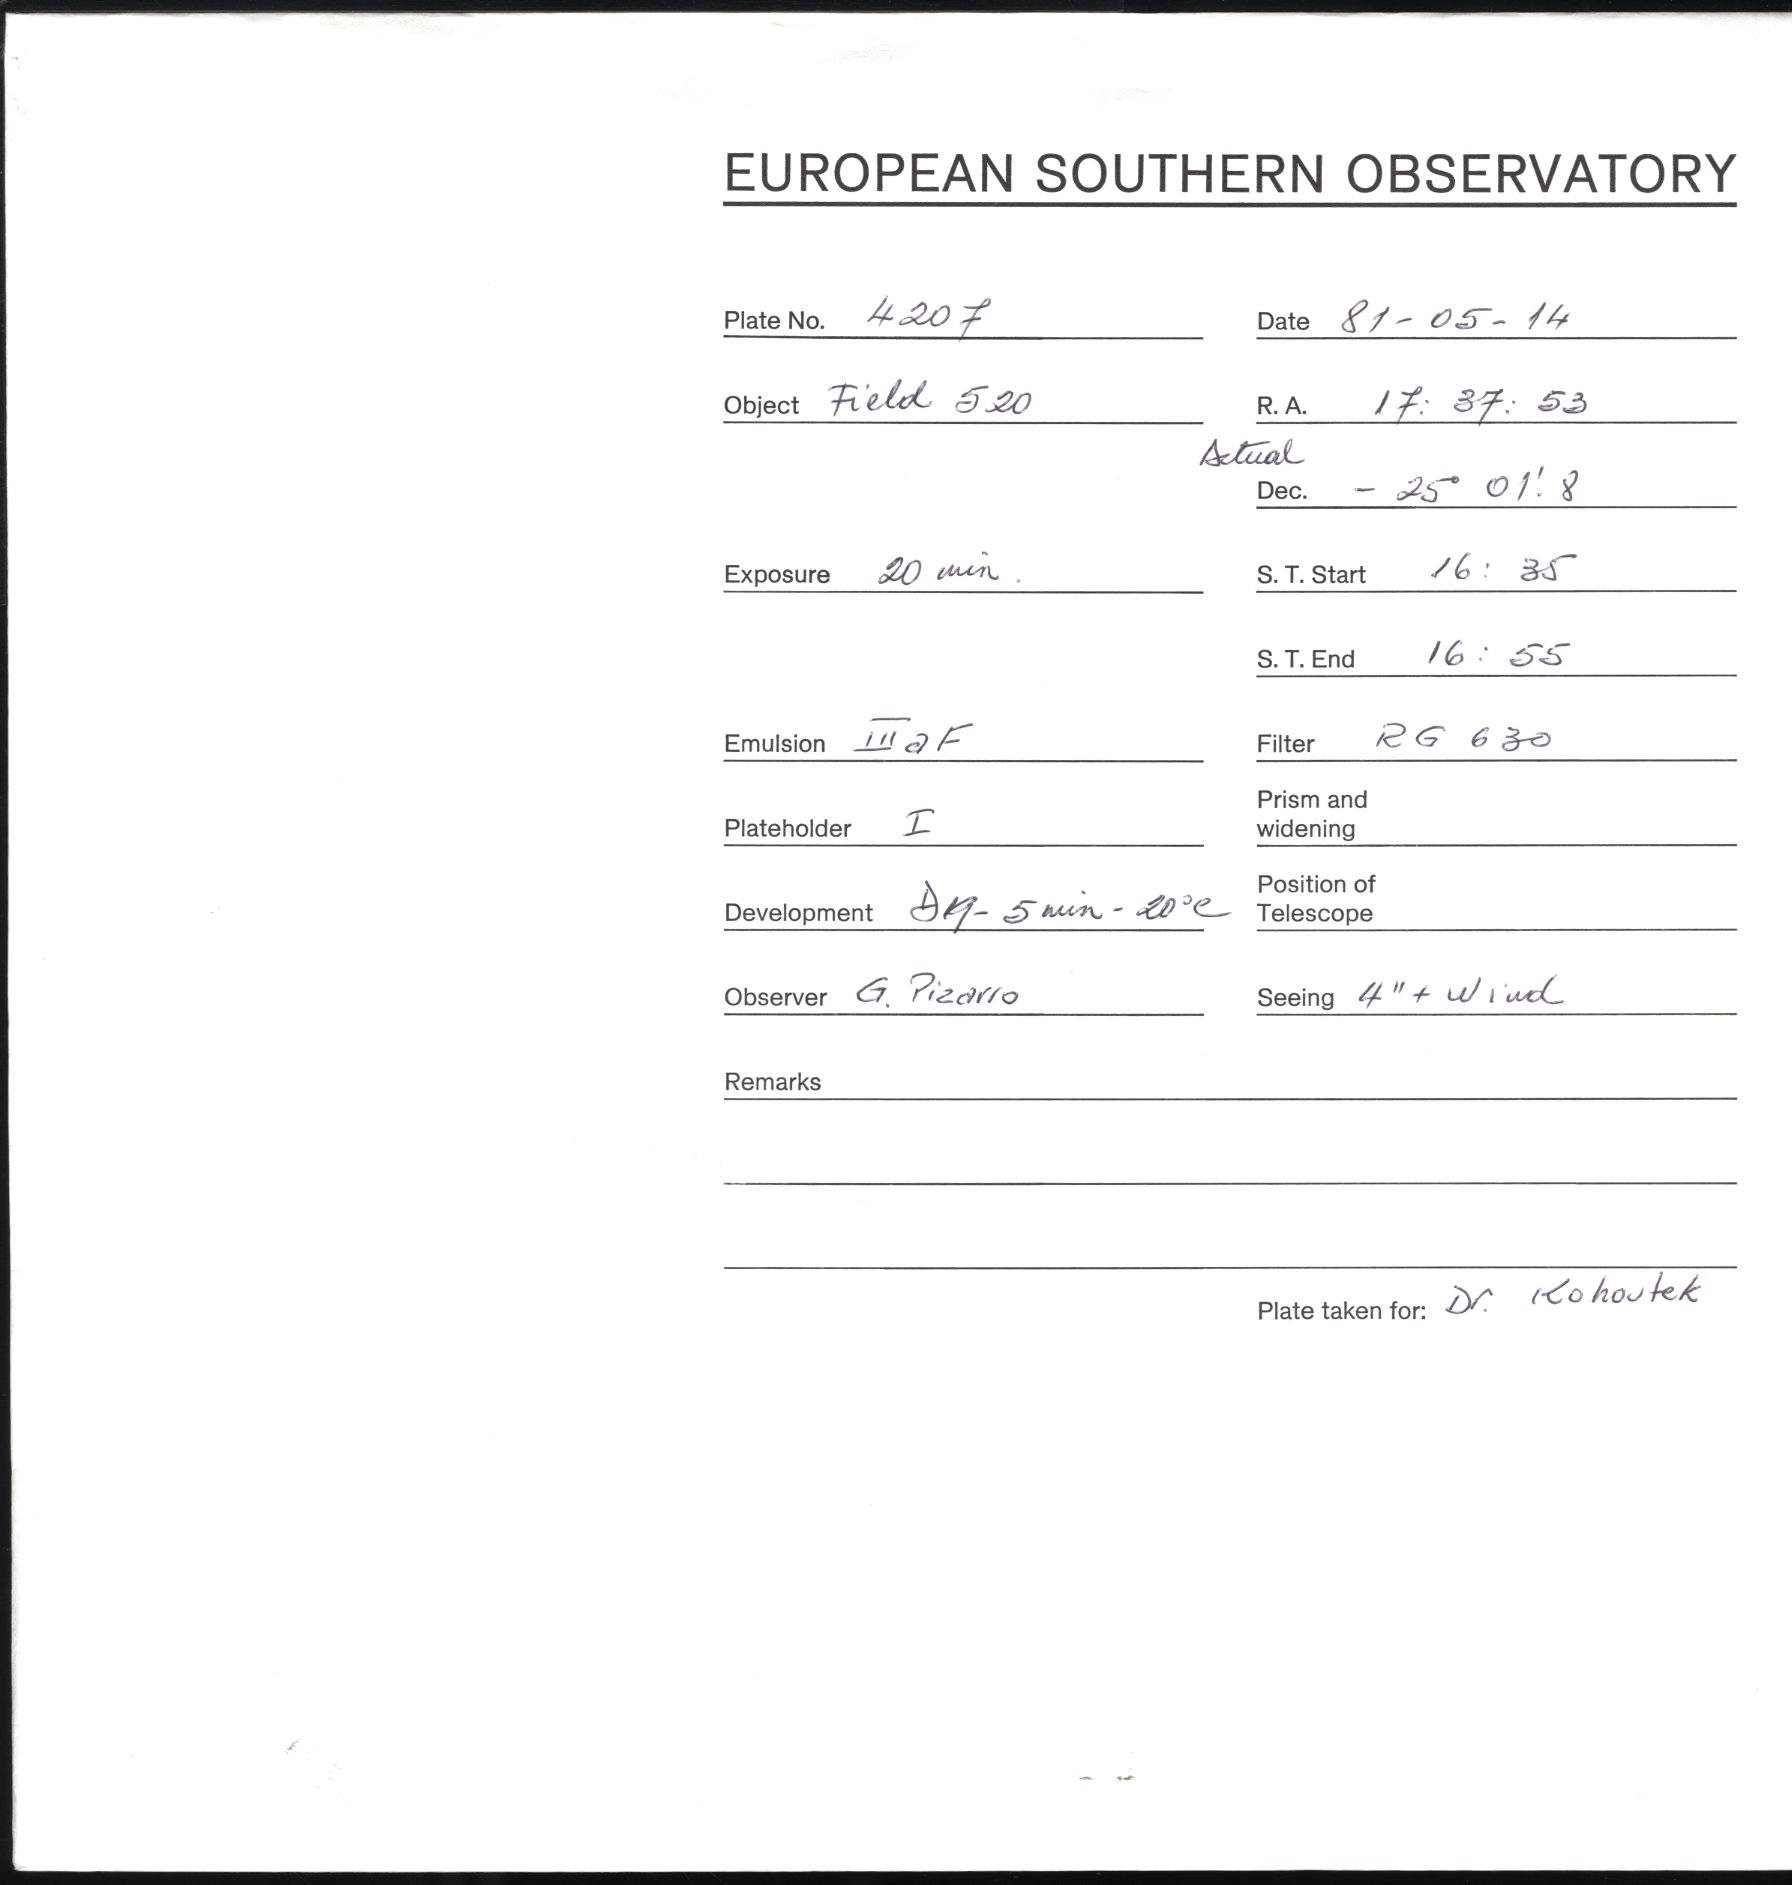 EUROPEAN SOUTHERN OBSERVATORY
Plate No. 4207 Date 81-05-14
Object Field 520 R. A. 17: 37: 53
Actual
Dec. - 25° 01'.8
Exposure 20 min. S. T. Start 16: 35
S. T. End 16: 55
Emulsion III a F Filter RG 630
Prism and
widening
Plateholder I
Position of
Telescope
Development - 5 min - 20°C
Observer G. Pizarro Seeing 4" + Wind
Remarks
Plate taken for: Dr. Kohoutek